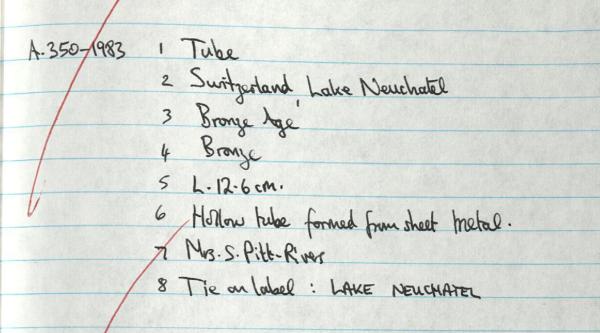 A.350-1983 1 Tube
2 Switzerland Lake Neuchatel
3 Bronze Age
4 Bronze
5 L.12.6cm.
6 Hollow tube formed from sheet metal.
7 Mrs.S.Pitt-Rivers
8 Tie on label : LAKE NEUCHATEL